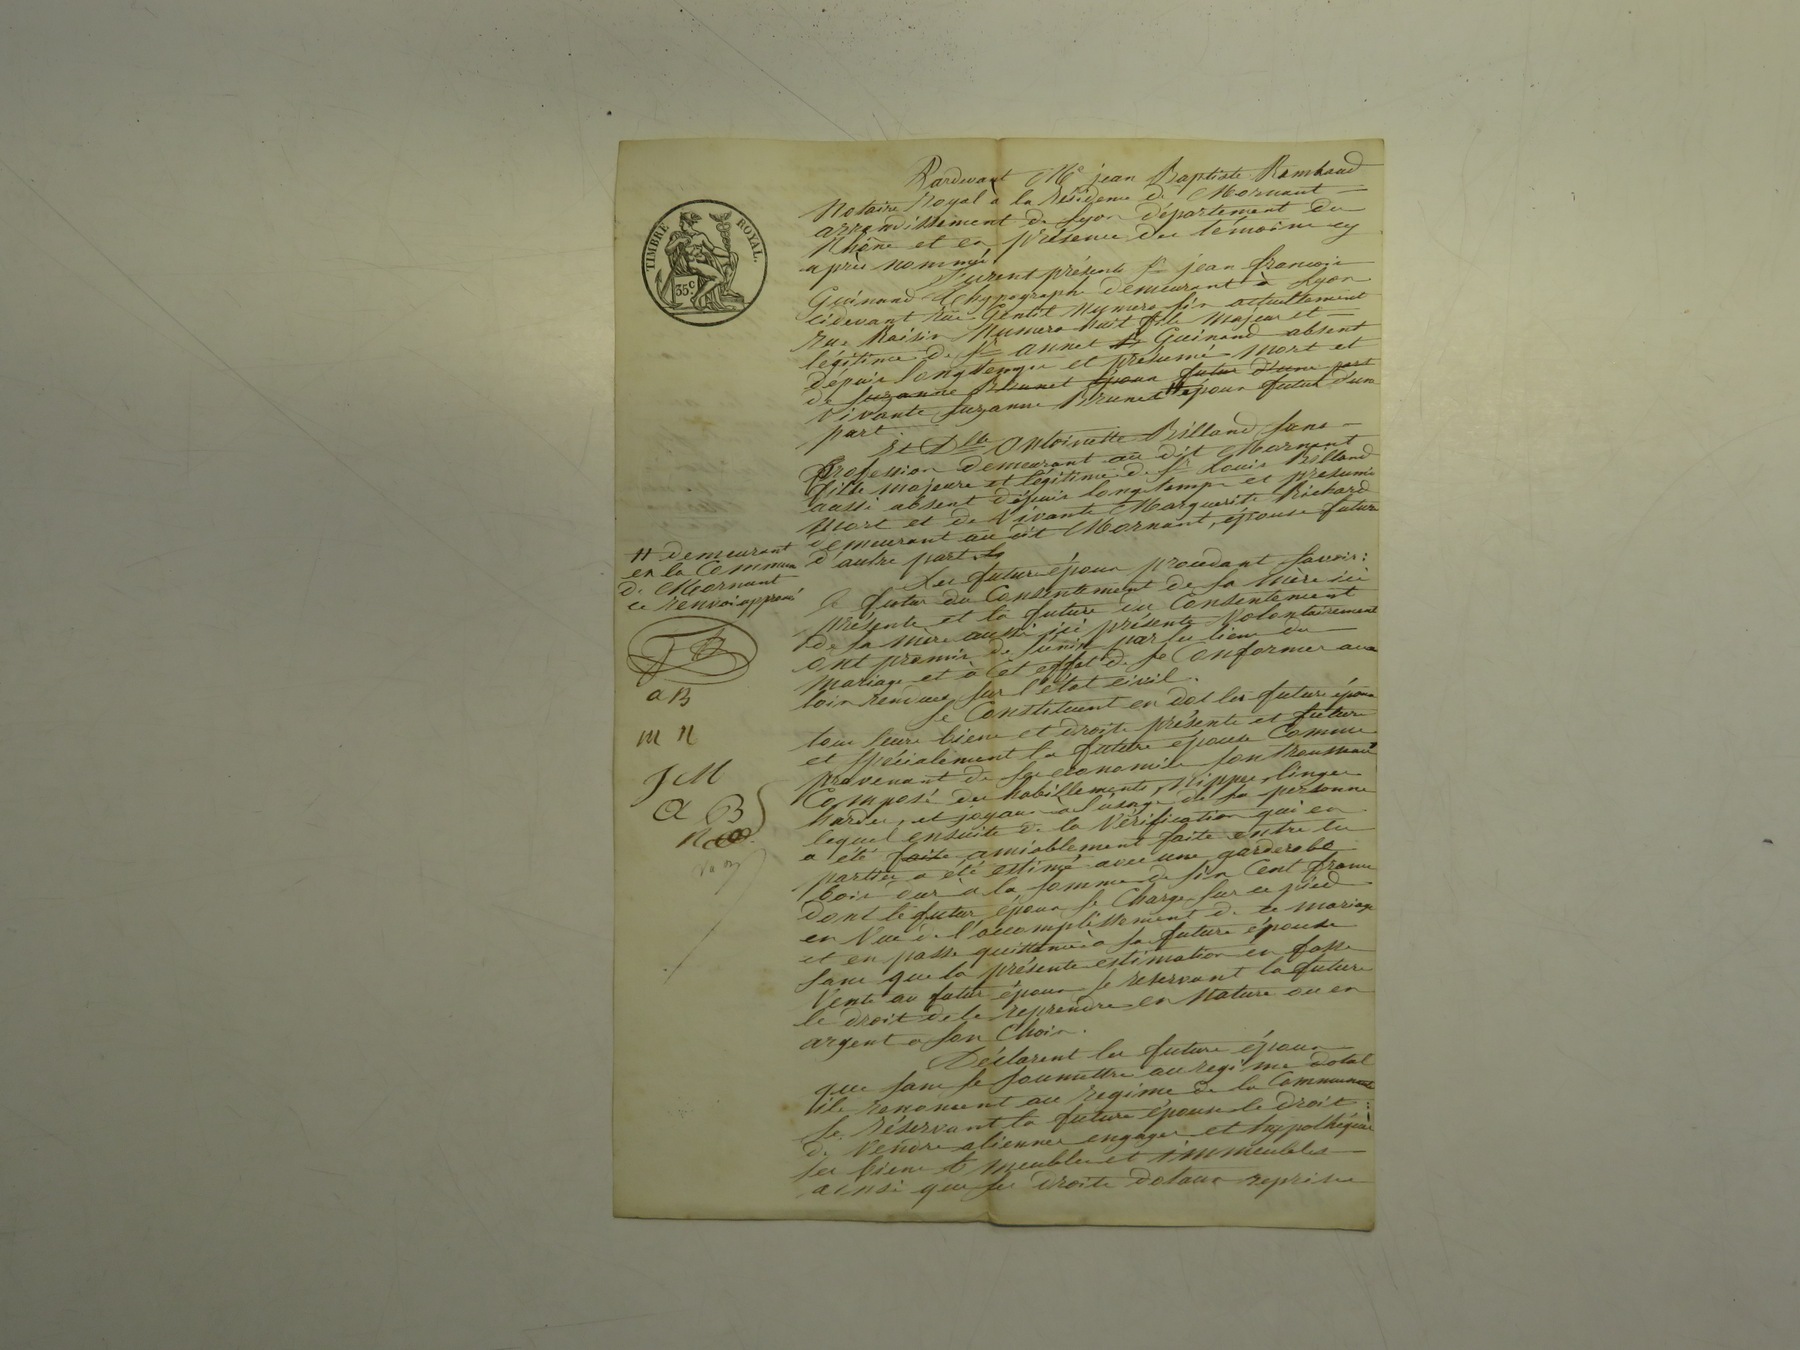 TIMBRE ROYAL.
35c
Pardevant Me jean Baptiste Rambaud
Notaire Royal à la Résidence de Mornant
arrondissement de Lyon département du
Rhône et en présence des témoins cy
après nommés,
furent présents sr jean francois
Guinand thypographe demeurant à Lyon
cidevant rue Gentil Numero six actuellement
rue Raisin Numero huit fils majeur et
légitime de sr annet Guinand absent
dépuis longtemps et présumé mort et
de suzanne Brunet époux futur d'une part
vivante suzanne Brunet # époux futur d'une
part
Et Dlle Antoinette Billand sans
profession demeurant au dit Mornant
fille majeure et légitime de sr Louis Billand
aussi absent dépuis longtemps et présumé
mort et de vivante Marguerite Richard
demeurant au dit Mornant, épouse future
d'autre part
# demeurant
en la Commune
de Mornant
ce renvoi approuvé
Les futurs époux procedant savoir:
le futur du Consentement de sa mère ici
présente et la future du Consentement
de sa mere aussi ici présente volontairement
ont promis de s'unir par les liens du
mariage et à cet effet de se Conformer aux
loix rendues sur l'état civil.
Se Constituent en dot les futurs époux
tous leurs biens et droits présents et futurs
et spécialement la future épouse Comme
provenant de ses économies son trousseau
Composé des habillements, nippes, linges
hardes, et joyaux à l'usage de sa personne
lequel ensuite de la vérification qui en
a été faite amiablement faite entre les
parties a été estimé avec une garderobe
bois dur à la somme de six Cent francs
dont le futur époux se Charge sur ce pied
en vue de l'accomplissement de ce mariage
et en passe quittance à sa future épouse
sans que la présente estimation en fasse
vente au futur époux se reservant la future
le droit de le reprendre en nature ou en
argent a son Choix.
a B
m R
J M
a B
Déclarent les futurs époux
que sans se soumettre au regime dotal
ils renoncent au regime de la Communauté
se réservant la future épouse le droit
de vendre aliener engager et hypothéquer
ses biens meubles et immeubles
ainsi que ses droits dotaux reprises